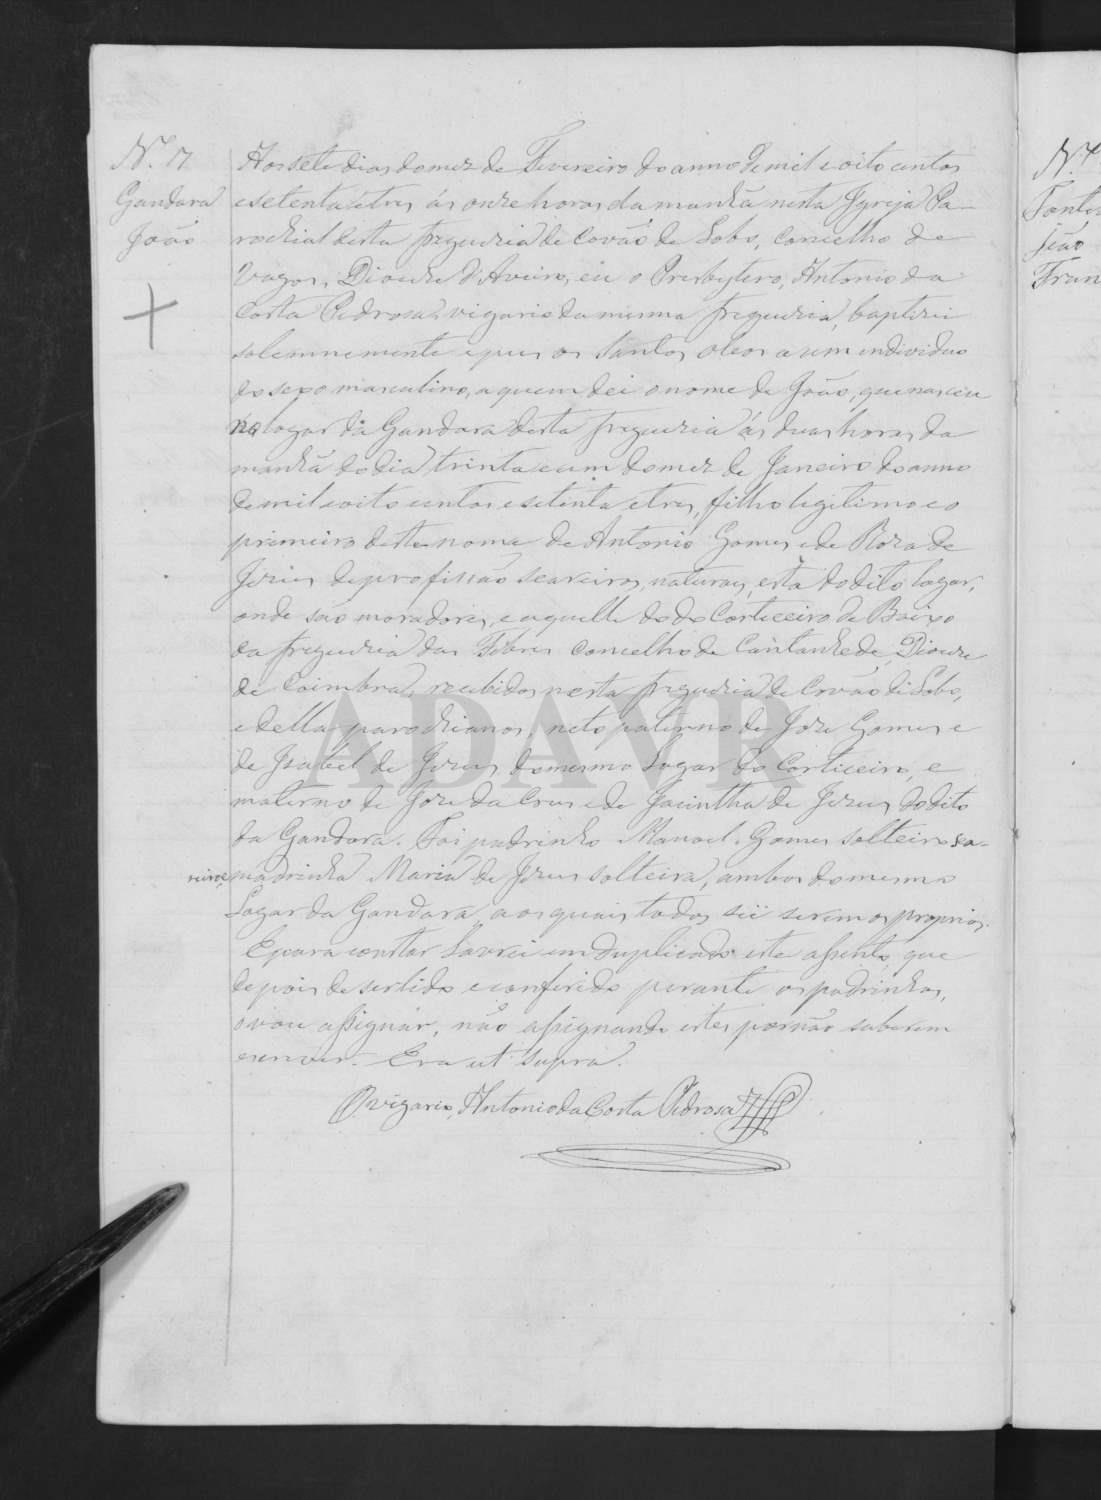 N.º 7
Gandara
João
Aos sete dias do mez de Fevereiro do anno de mil e oito centos
e setenta e tres ás onze horas da manhã nesta Igreja Pa-
rochial desta freguezia de Covão de Lobo, concelho de
Vagos, Diocese d'Aveiro, eu o Presbytero, Antonio da
Costa Pedrosa vigario da mesma freguezia, baptizei
solemnemente e puz os Santos oleos a um individuo
do sexo masculino, a quem dei o nome de João, que nasceu
no logar da Gandara desta freguezia ás duas horas da
manhã do dia trinta e um do mez de Janeiro do anno
de mil e oito centos e setenta e tres, filho legitimo e o
primeiro deste nome de Antonio Gomes e de Roza de
Jezus de profissão seareiros, naturaes, esta do dito logar,
onde são moradores, e aquelle do do Corticeiro de Baixo
da freguezia das Febres concelho de Cantanhede, Diocese
de Coimbra, recebidos nesta freguezia de Covão de Lobo,
e della parochianos, neto paterno de Joze Gomes e
de Isabel de Jezus, do mesmo Lugar do Corticeiro, e
materno de Joze da Cruz e de Jacintha de Jezus do dito
da Gandara. Foi padrinho Manoel Gomes solteiro sea-
reiro, madrinha Maria de Jezus solteira, ambos do mesmo
Logar da Gandara, aos quais todos sei serem os proprios.
E para constar Lavrei em duplicado este assento, que
depois de ser lido e conferido perante os padrinhos,
o vou assignar, não assignando estes por não saberem
escrever. Era ut supra.
O vigario, Antonio da Costa Pedrosa
ADAVR
N.º
João
Fran